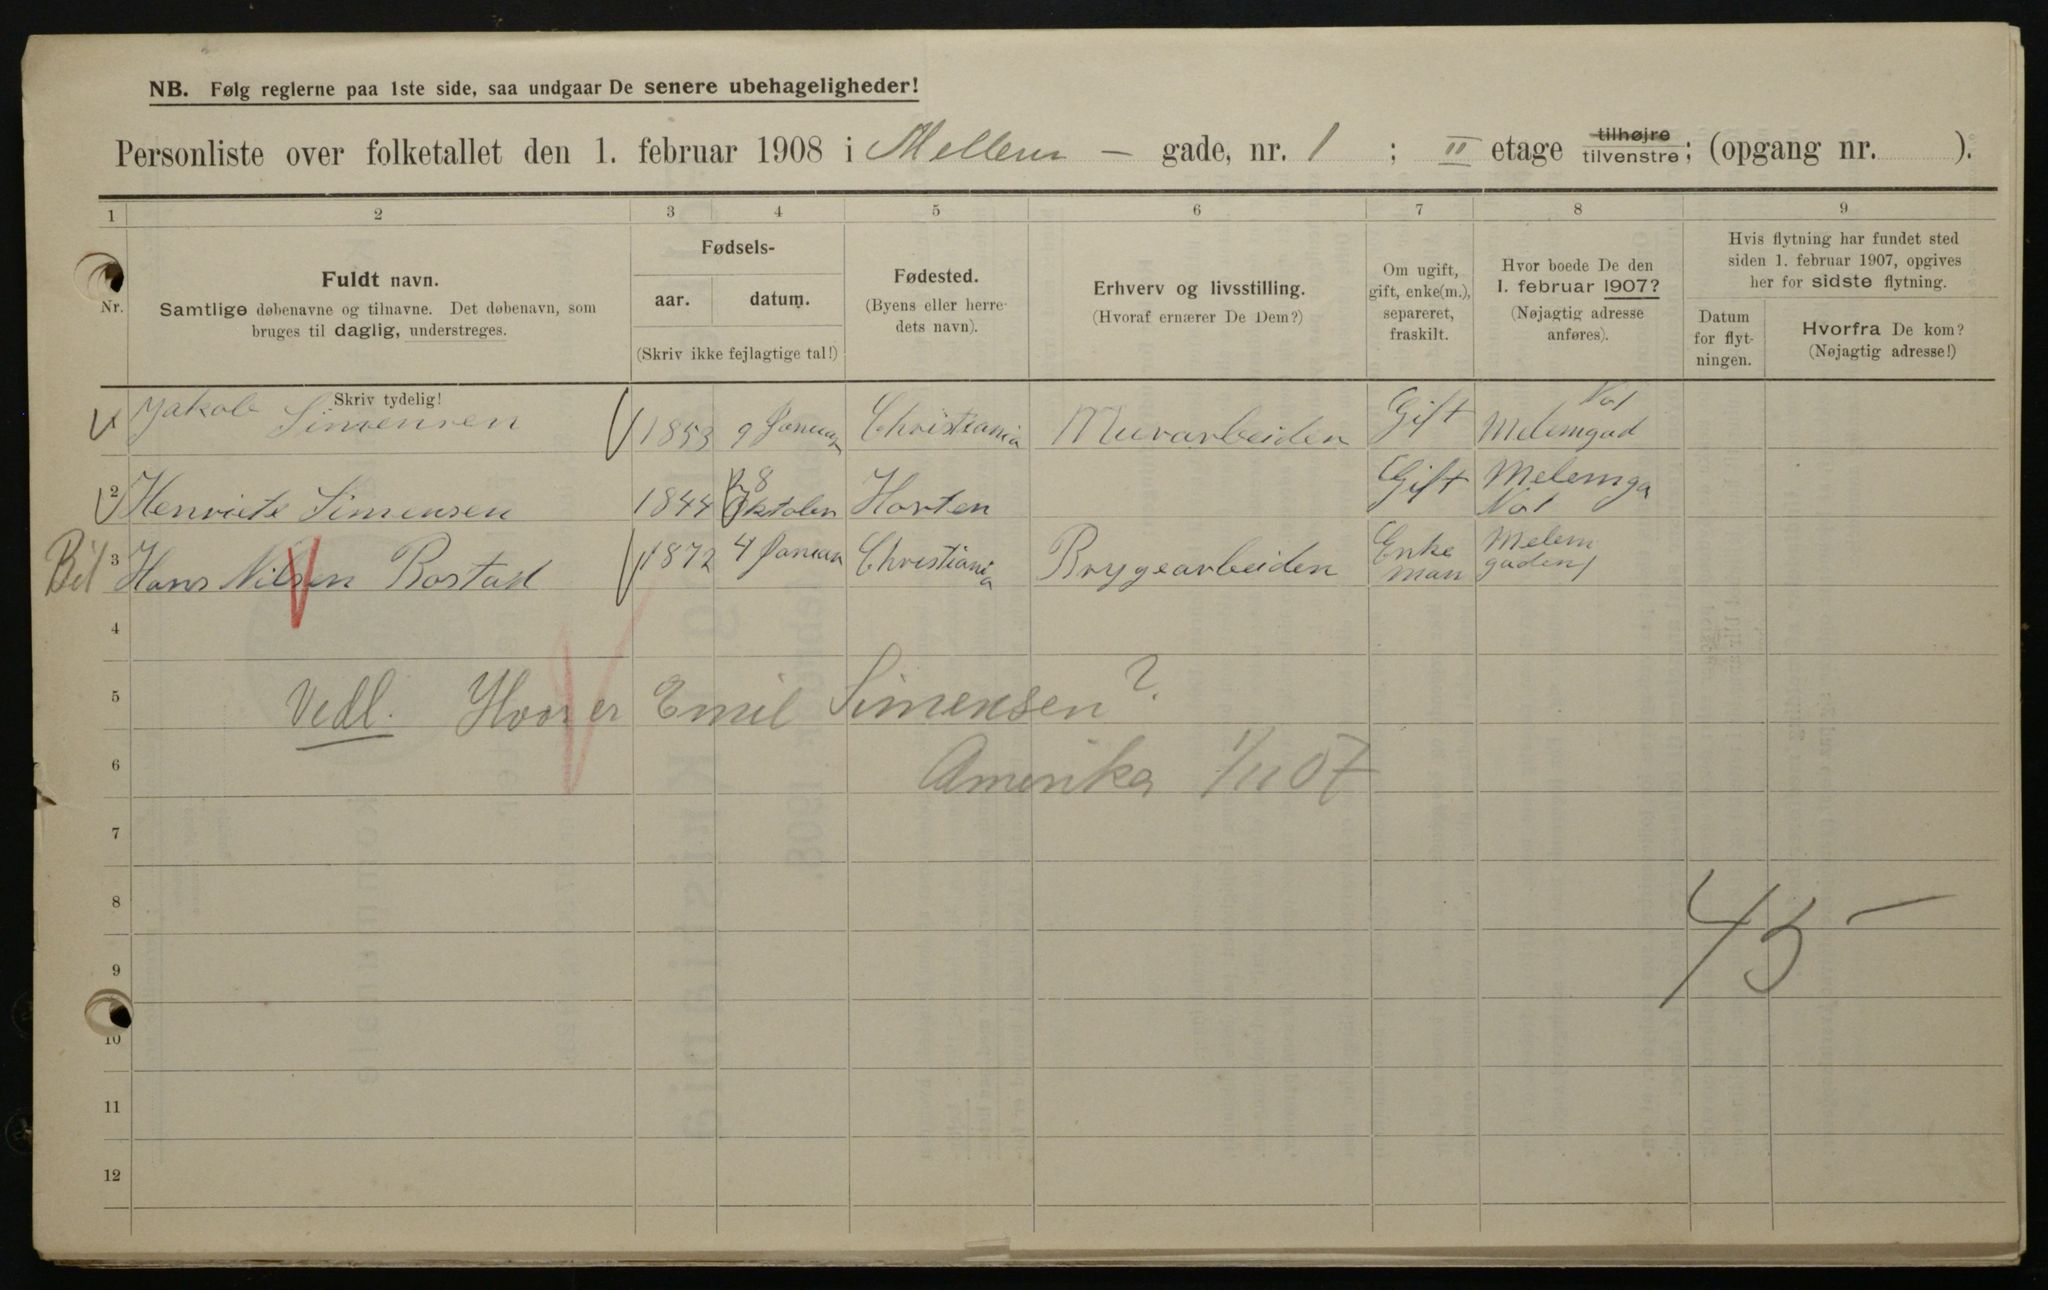 NB. Følg reglerne paa 1ste side, saa undgaar De senere ubehageligheder!
Personliste over folketallet den 1. februar 1908 i Mellem – gade, nr. 1 ; II etage tilhøjre/tilvenstre; (opgang nr. ).
1 2 3 4 5 6 7 8 9
Nr.
Fuldt navn.
Samtlige døbenavne og tilnavne. Det døbenavn, som
bruges til daglig, understreges.
Fødsels-
aar. datum.
(Skriv ikke fejlagtige tal!)
Fødested.
(Byens eller herre-
dets navn).
Erhverv og livsstilling.
(Hvoraf ernærer De Dem?)
Om ugift,
gift, enke(m.),
separeret,
fraskilt.
Hvor boede De den
1. februar 1907?
(Nøjagtig adresse
anføres).
Hvis flytning har fundet sted
siden 1. februar 1907, opgives
her for sidste flytning.
Datum
for flyt-
ningen.
Hvorfra De kom?
(Nøjagtig adresse!)
Skriv tydelig!
Jakob Simensen 1853 9 Januar Christiania Murarbeiden Gift Melemgad No 1
2 Henriete Simensen 1844 8 Oktober Horten Gift Melemga No 1
Bil 3 Hans Nilsen Rostad 1872 4 Januar Christiania Brygearbeiden Enke man Melem gaden 1
4
5 Vedl. Hvor er Emil Simensen?
6 Amerika 1/11 07
7
8
45 –
9
10
11
12